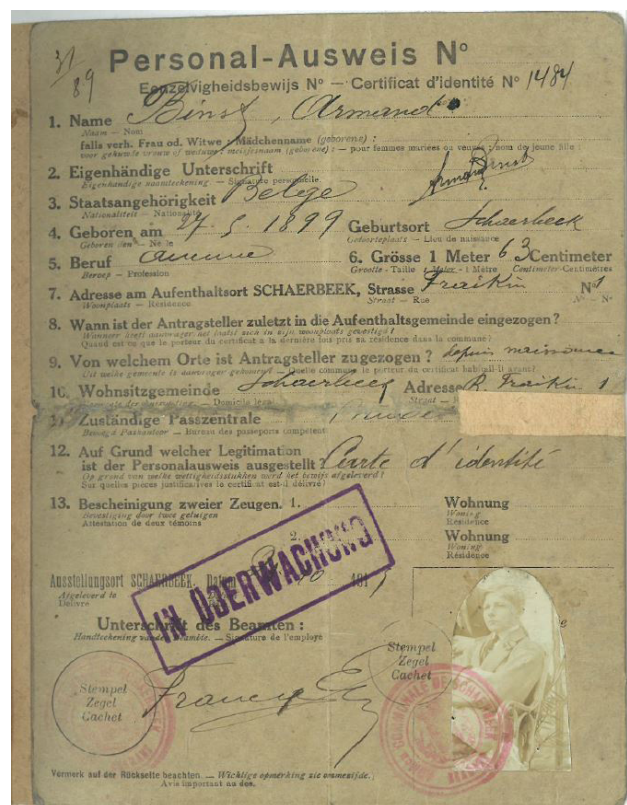 31
89
Personal-Ausweis No
Eenzelvigheidsbewijs No — Certificat d'identité No 1484
1. Name Binst, Armand
Naam — Nom
falls verh. Frau od. Witwe : Mädchenname (geborene) :
voor gehuwde vrouw of weduwe : meisjesnaam (geborene) : — pour femmes mariées ou veuves : nom de jeune fille :
2. Eigenhändige Unterschrift Armand Binst
Eigenhandige naamteekening — Signature personnelle
3. Staatsangehörigkeit Belge
Nationaliteit — Nationalité
4. Geboren am 27. 5. 1899 Geburtsort Schaerbeek
Geboren den — Né le Geboorteplaats — Lieu de naissance
5. Beruf aucune 6. Grösse 1 Meter 63 Centimeter
Beroep — Profession Grootte - Taille 1 Meter - 1 Mètre Centimeter-Centimètres
7. Adresse am Aufenthaltsort SCHAERBEEK, Strasse Fraikin No 1
Woonplaats — Résidence Straat — Rue No
8. Wann ist der Antragsteller zuletzt in die Aufenthaltsgemeinde eingezogen?
Wanneer heeft aanvrager het laatst zich in zijn woonplaats gevestigd?
Quand est-ce que le porteur du certificat a la dernière fois pris sa résidence dans la commune?
9. Von welchem Orte ist Antragsteller zugezogen? depuis naissance
Uit welke gemeente is aanvrager gekomen? — Quelle commune le porteur du certificat habitait-il avant?
10. Wohnsitzgemeinde Schaerbeek Adresse R. Fraikin 1
Domicile Straat
11. Zuständige Passzentrale
Bevoegd Paskantoor — Bureau des passeports compétent
12. Auf Grund welcher Legitimation
ist der Personalausweis ausgestellt Carte d'identité
Op grond van welke wettigheidsstukken werd het bewijs afgeleverd?
Sur quelles pièces justificatives le certificat est-il délivré?
13. Bescheinigung zweier Zeugen. 1. Wohnung
Bevestiging door twee getuigen Woning
Attestation de deux témoins Résidence
2. Wohnung
Woning
Résidence
IN UBERWACHUNG
Ausstellungsort SCHAERBEEK. Datum 191
Afgeleverd te
Délivré
Unterschrift des Beamten :
Handteekening van den beambte. — Signature de l'employé
Stempel
Zegel
Cachet
Stempel
Zegel
Cachet
Vermerk auf der Rückseite beachten. — Wichtige opmerking zie ommezijde.
Avis important au dos.